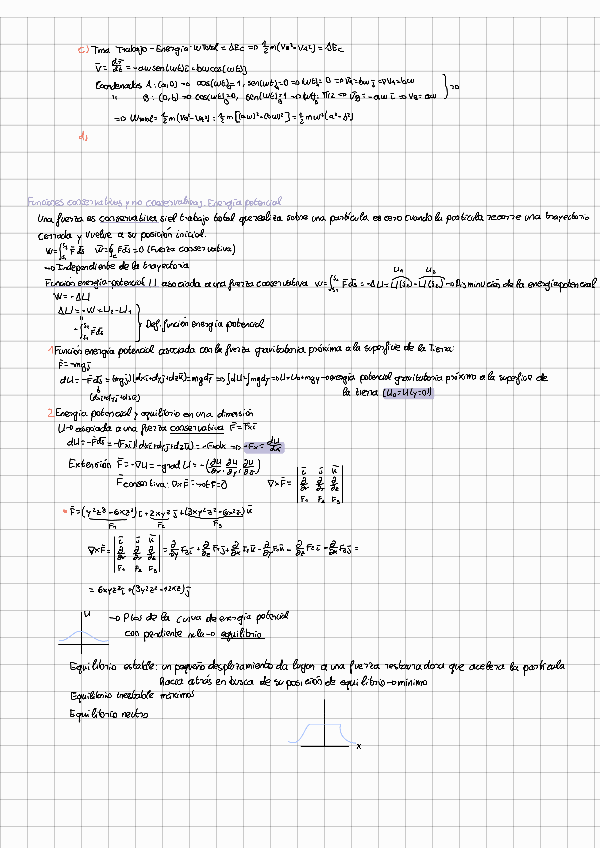 c) Tma Trabajo-Energía: WTotal = ΔEc => ½m(VB²-VA²) = ΔEc
v̄ = dr̄/dt = -aw sen(wt) i + bw cos(wt) j
Coordenadas A: (a,0) => cos(wt)=1, sen(wt)=0 => wt=0 => v̄A = bw j => VA = bw
" B: (0,b) => cos(wt)=0, sen(wt)=1 => wt = π/2 => v̄B = -aw i => VB = aw
=> WTotal = ½m(VB²-VA²) = ½m[(aw)²-(bw)²] = ½mw²(a²-b²)
d)
Funciones conservativas y no conservativas. Energía potencial
Una fuerza es conservativa si el trabajo total que realiza sobre una partícula es cero cuando la partícula recorre una trayectoria
cerrada y vuelve a su posición inicial.
W = ∫ F̄ ds̄ W = ∮ F̄ ds̄ = 0 (Fuerza conservativa)
→ Independiente de la trayectoria
Función energía-potencial U asociada a una fuerza conservativa W = ∫ F̄ ds̄ = -ΔU = U(s1) - U(s2) → Disminución de la energía potencial
W = -ΔU
ΔU = -W = U2 - U1
-∫ F̄ ds̄
Def. función energía potencial
1 Función energía potencial asociada con la fuerza gravitatoria próxima a la superficie de la Tierra:
F̄ = -mg j
dU = -F̄ ds̄ = (mg j)(dx i + dy j + dz k) = mg dy => ∫dU = ∫mg dy → U = U0 + mgy → energía potencial gravitatoria próximo a la superficie de
(dx i + dy j + dz k)
la tierra (U0 = U(y=0))
2 Energía potencial y equilibrio en una dimensión
U → asociada a una fuerza conservativa F̄ = Fx i
dU = -F̄ ds̄ = -(Fx i)(dx i + dy j + dz k) = -Fx dx => -Fx = dU/dx
Extensión F̄ = -∇U = -grad U = -(∂U/∂x, ∂U/∂y, ∂U/∂z)
F̄ conservativa: ∇×F̄ = rot F = 0 ∇×F̄ = | i j k ; ∂/∂x ∂/∂y ∂/∂z ; F1 F2 F3 |
• F̄ = (y²z³ - 6xz²) i + 2xyz³ j + (3xy²z² - 6x²z) k
F1 F2 F3
∇×F̄ = | i j k ; ∂/∂x ∂/∂y ∂/∂z ; F1 F2 F3 | = ∂/∂y F3 i + ∂/∂z F1 j + ∂/∂x F2 k - ∂/∂y F1 k - ∂/∂z F2 i - ∂/∂x F3 j =
U → Ptos de la curva de energía potencial
con pendiente nula → equilibrio
Equilibrio estable: un pequeño desplazamiento da lugar a una fuerza restauradora que acelera la partícula
hacia atrás en busca de su posición de equilibrio → mínimo
Equilibrio inestable máximos
Equilibrio neutro
x